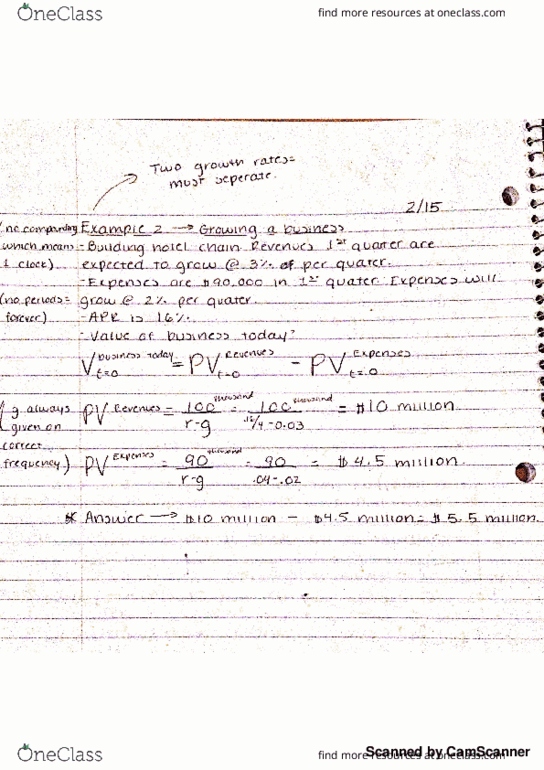 OneClass
find more resources at oneclass.com
Two growth rates=
must seperate.
2/15
(no compounding Example 2 → Growing a business
which means - Building hotel chain Revenues 1st quarter are
1 clock) expected to grow @ 3% of per quater.
- Expenses are $90,000 in 1st quater Expenses will
(no periods = grow @ 2% per quater.
forever) - APR is 16%.
- Value of business today?
V business today t=0 = PV Revenues t=0 - PV Expenses t=0
(g always PV Revenues = 100 thousand / r-g = 100 thousand / .16/4 - 0.03 = $10 million
given on
correct
frequency) PV Expenses = 90 thousand / r-g = 90 / .04-.02 = $4.5 million.
* Answer → $10 million - $4.5 million = $5.5 million.
Scanned by CamScanner
OneClass
find more resources at oneclass.com